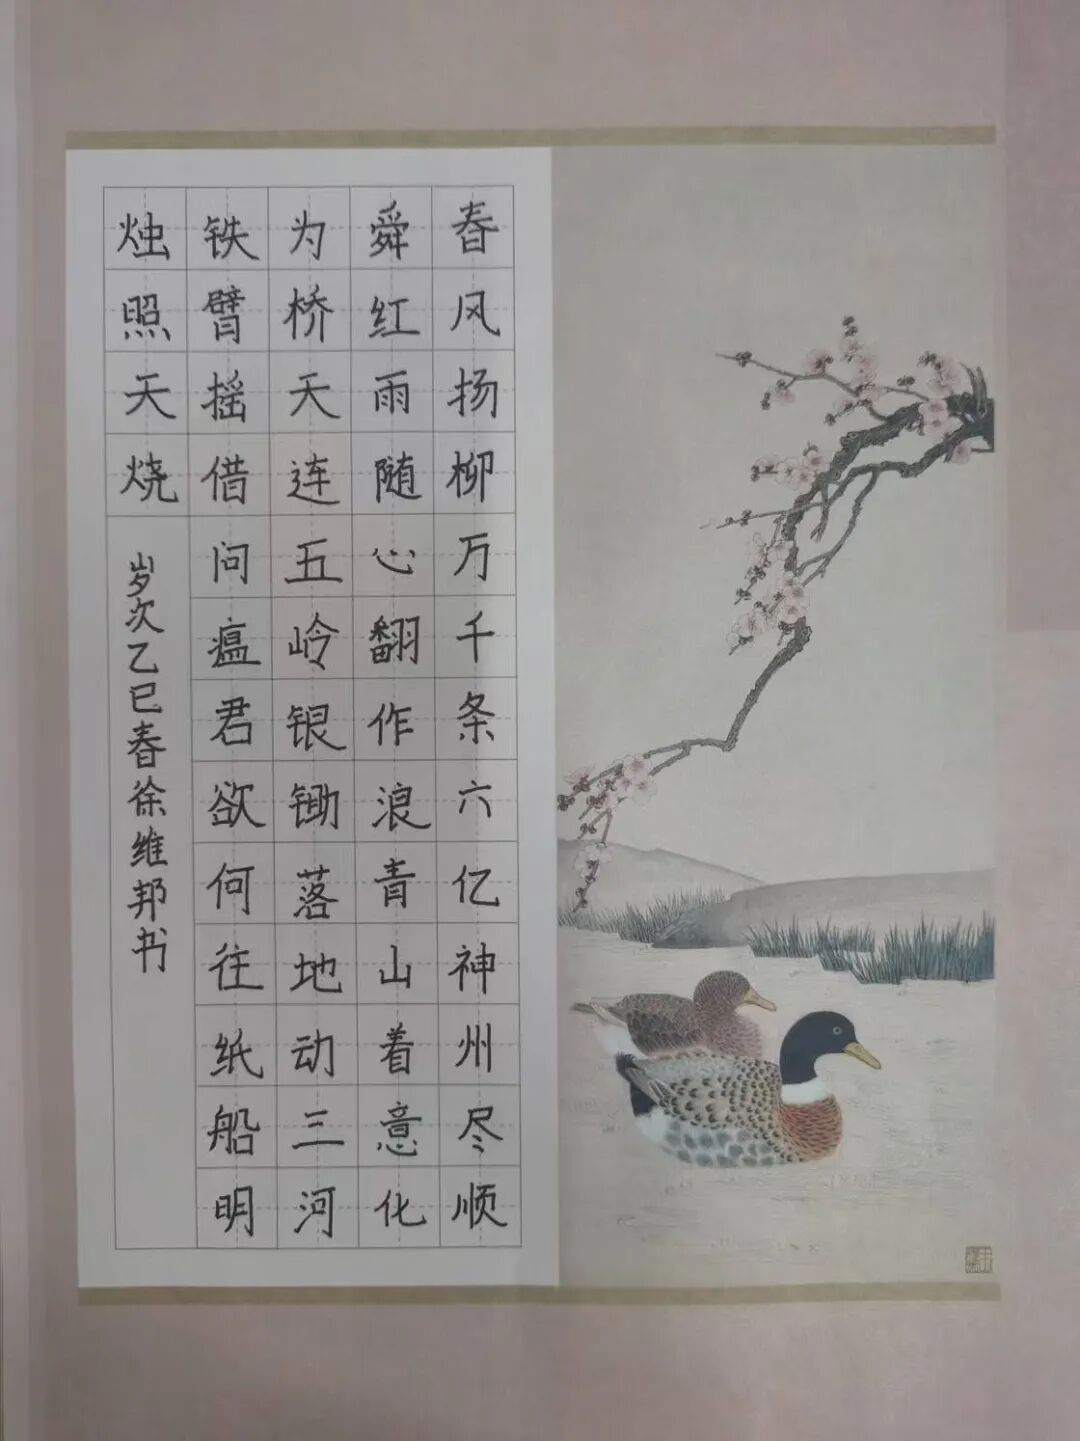 春风扬柳万千条六亿神州尽顺
舜红雨随心翻作浪青山着意化
为桥天连五岭银锄落地动三河
铁臂摇借问瘟君欲何往纸船明
烛照天烧
岁次乙巳春徐维邦书